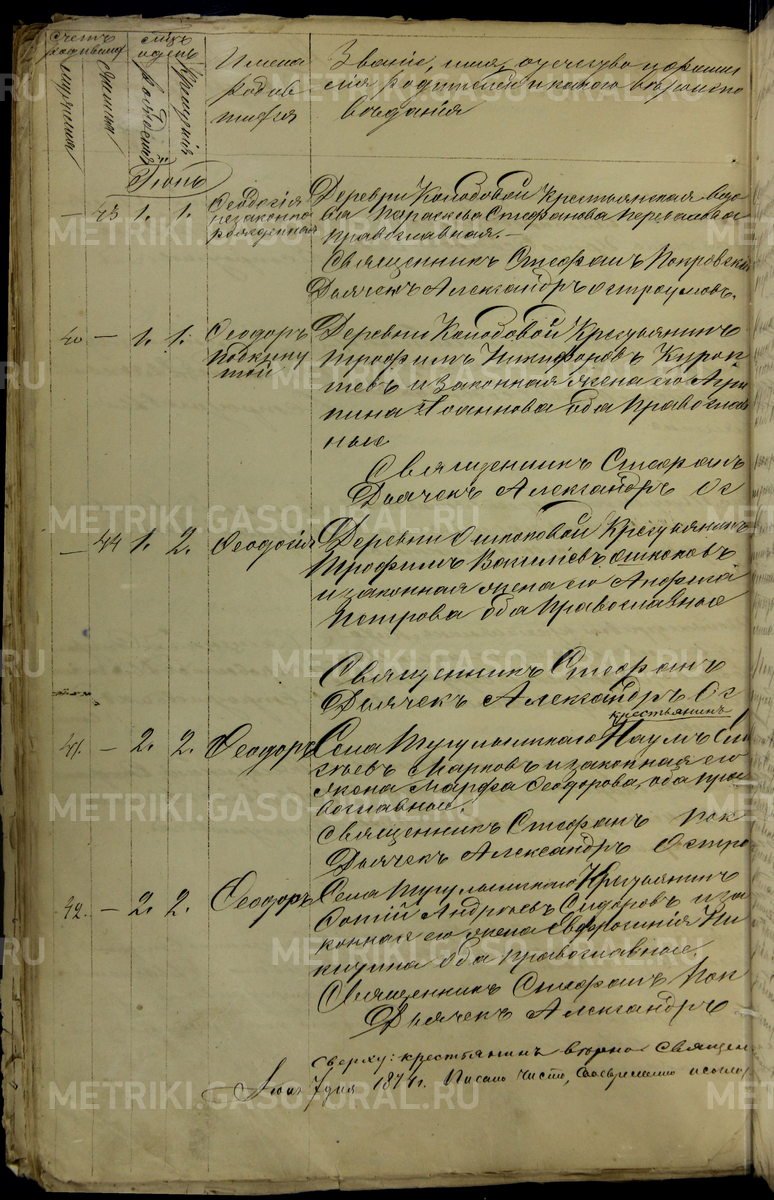 Счетъ родившихся
мужеска
женска
Мѣсяцъ и день
рожденія
крещенія
Имена родив
шихся
Званіе, имя, отчество и фамил
лія родителей и какого вѣроиспо
вѣданія
Іюнь
— 43 1. 1. Феодосія
незаконно
рожденная
Деревни Колобовой Крестьянская вдо
ва Параскева Стефанова
православная. —
Священникъ Стефанъ Покровскій
Дьячекъ Александръ Остроумовъ.
40 — 1. 1. Феодоръ
подкину
той
Деревни Колобовой Крестьянинъ
Трофимъ Никифоровъ
и законная жена его Агри
пина Іоаннова оба православ
ные
Священникъ Стефанъ
Дьячекъ Александръ Ос
— 44 1. 2. Феодосія
Деревни Ошкоковой Крестьянинъ
Трофимъ Василіевъ Ошкоковъ
и законная жена его Анфиса
Петрова оба православные
Священникъ Стефанъ
Дьячекъ Александръ Ос
крестьянинъ
41. — 2. 2. Феодоръ
Села Тугулымскаго Наумъ
Марковъ и законная его
жена Марфа Феодорова, оба пра
вославные.
Священникъ Стефанъ Пок
Дьячекъ Александръ Остро
42. — 2. 2. Феодоръ
Села Тугулымскаго Крестьянинъ
Фотій Андреевъ Сидоровъ и за
конная его жена Евфросинія Ни
китина оба православные.
Священникъ Стефанъ Пок
Дьячекъ Александръ
сверху: крестьянинъ вѣрно Священ
1874г. Писано чисто, своевременно и соглас
METRIKI.GASO-URAL.RU